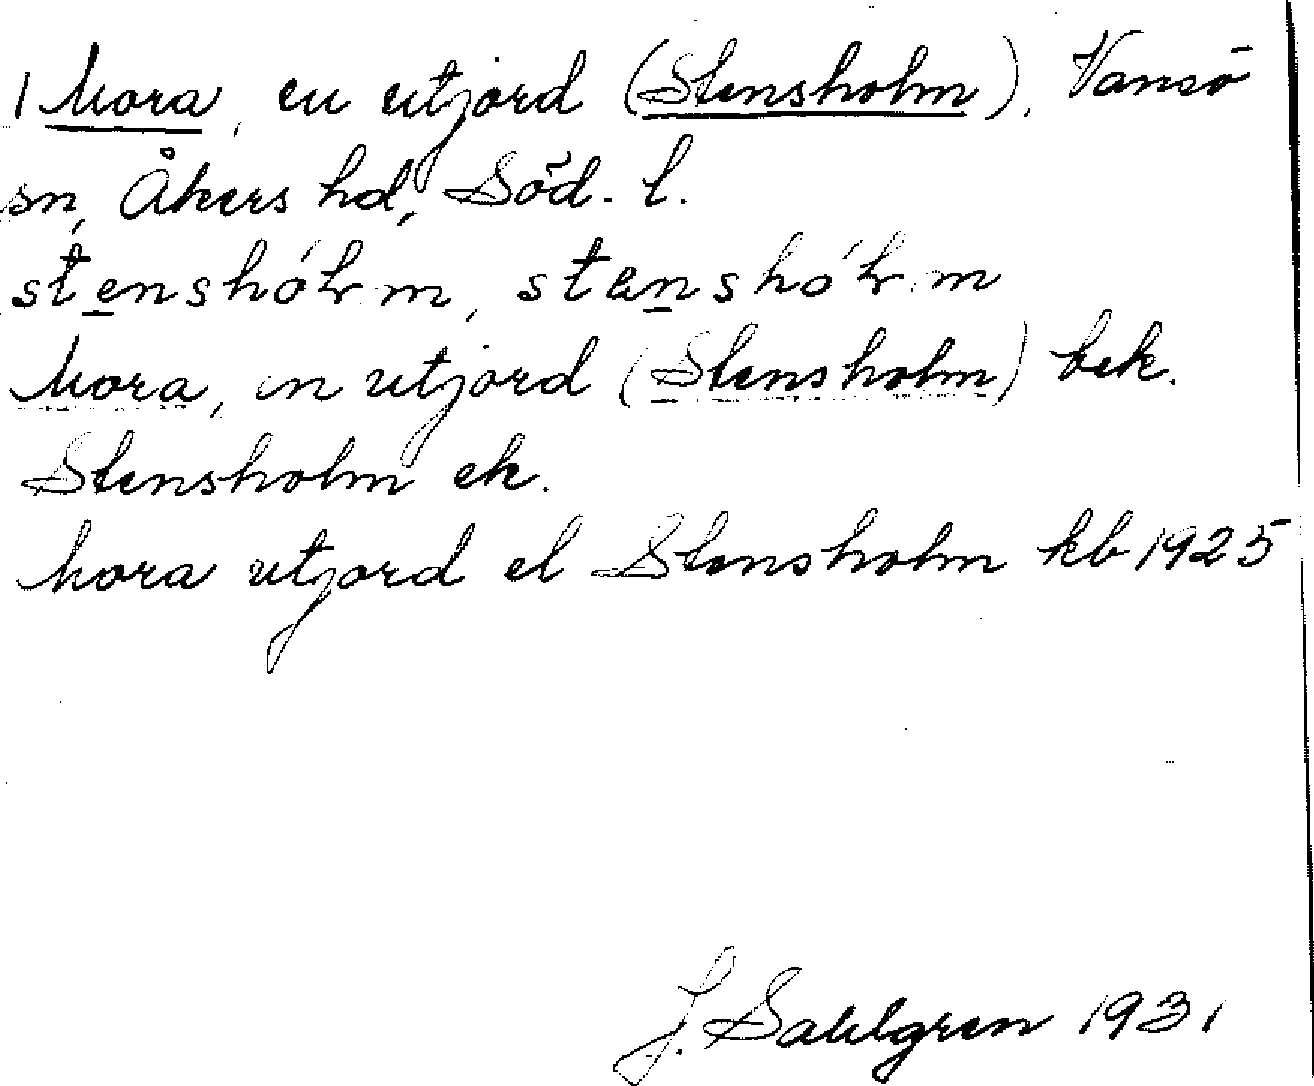 1 Mora, en utjord (Stensholm), Vansö
sn, Åkers hd, Söd. l.
Mora, en utjord (Stensholm) bek.
Stensholm ek.
Mora utjord el Stensholm kb 1925
J. Sahlgren 1931